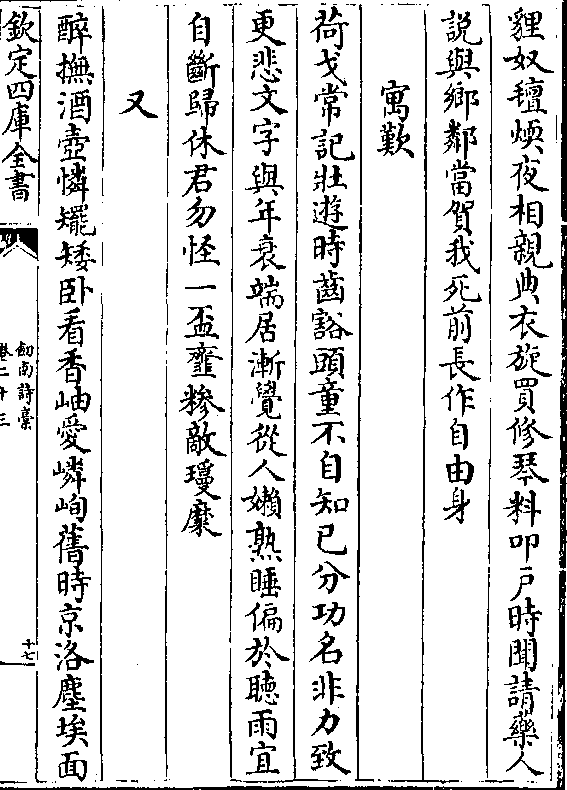 貍奴氊煖夜相親典衣旋買修琴料叩戶時聞請藥人
説與鄉鄰當賀我死前長作自由身
寓歎
荷戈常記壯遊時齒豁頭童不自知已分功名非力致
更悲文字與年衰端居漸覺從人嬾熟睡偏於聽雨宜
自斷歸休君勿怪一盃虀糝敵瓊糜
又
醉撫酒壺憐矲矮卧看香岫愛嶙峋舊時京洛塵埃面
欽定四庫全書
劒南詩稾
卷二十三
十七